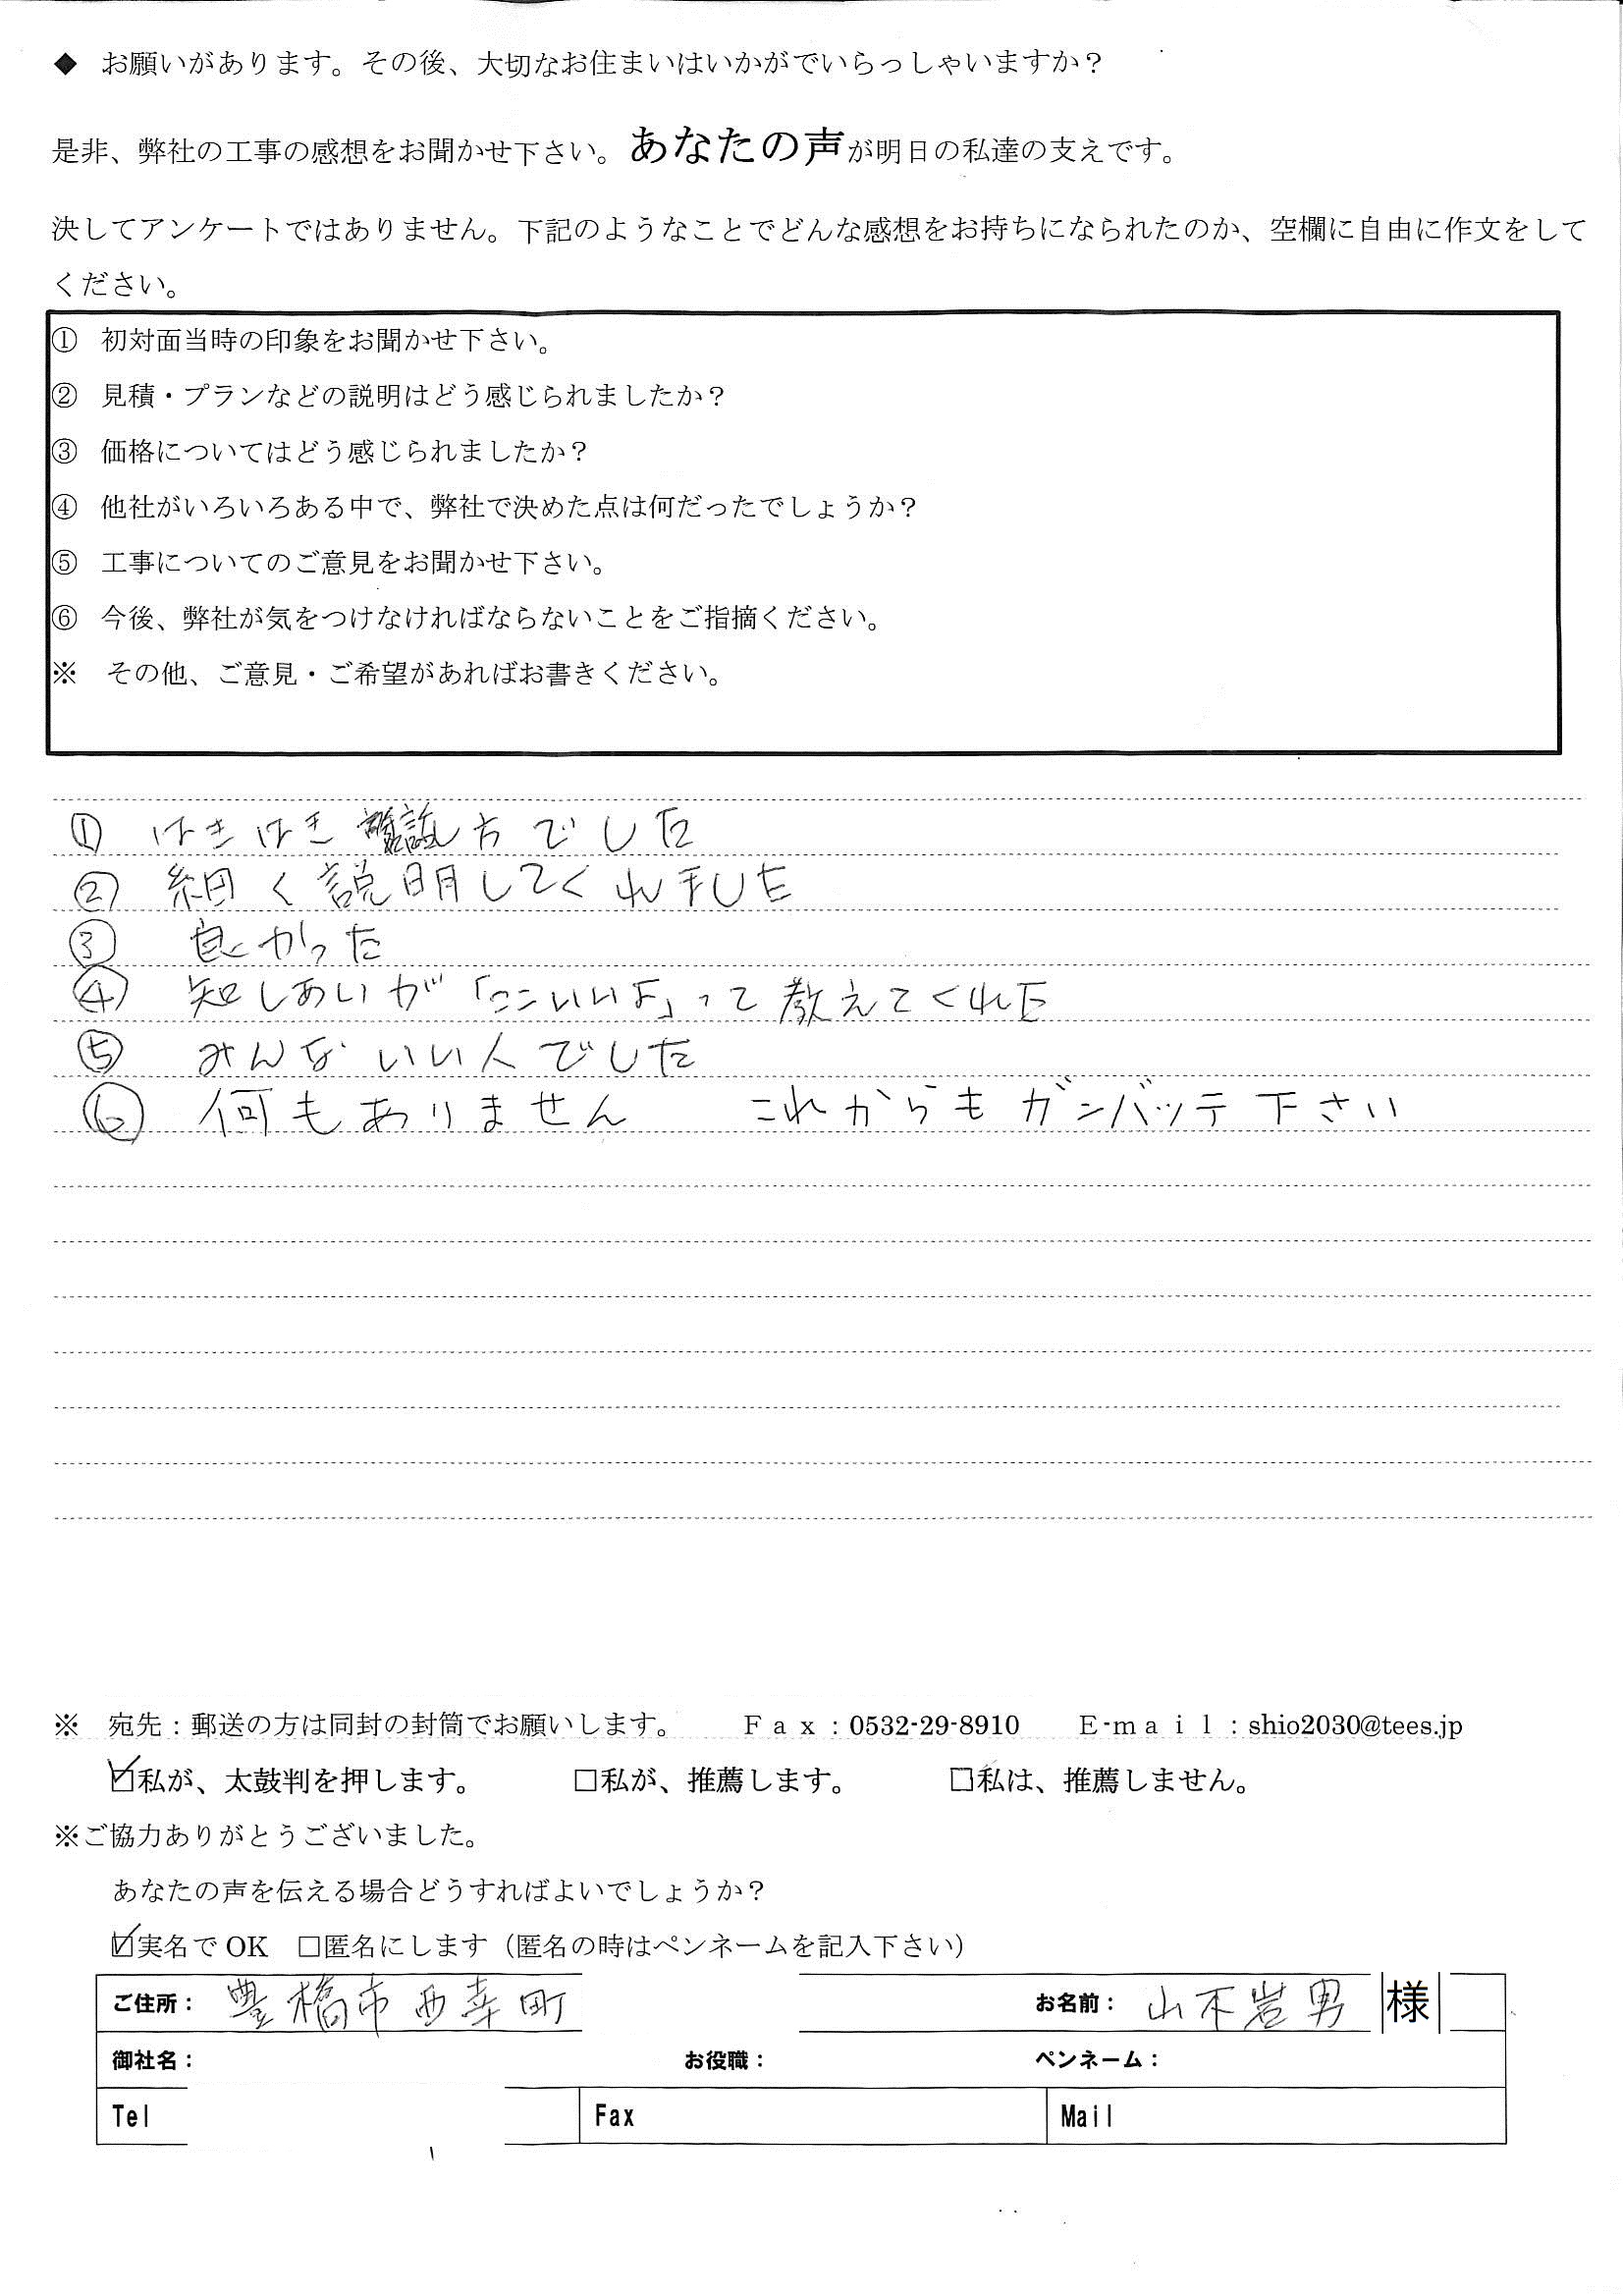 ◆ お願いがあります。その後、大切なお住まいはいかがでいらっしゃいますか？
是非、弊社の工事の感想をお聞かせ下さい。あなたの声が明日の私達の支えです。
決してアンケートではありません。下記のようなことでどんな感想をお持ちになられたのか、空欄に自由に作文をして
ください。
① 初対面当時の印象をお聞かせ下さい。
② 見積・プランなどの説明はどう感じられましたか？
③ 価格についてはどう感じられましたか？
④ 他社がいろいろある中で、弊社で決めた点は何だったでしょうか？
⑤ 工事についてのご意見をお聞かせ下さい。
⑥ 今後、弊社が気をつけなければならないことをご指摘ください。
※ その他、ご意見・ご希望があればお書きください。
① はきはき 話し方でした
② 細く説明してくれました
③ 良かった
④ 知しあいが「ここいいよ」って教えてくれた
⑤ みんないい人でした
⑥ 何もありません これからもガンバッテ下さい
※ 宛先：郵送の方は同封の封筒でお願いします。 Ｆａｘ：0532-29-8910 Ｅ-ｍａｉｌ：shio2030@tees.jp
☑私が、太鼓判を押します。 □私が、推薦します。 □私は、推薦しません。
※ご協力ありがとうございました。
あなたの声を伝える場合どうすればよいでしょうか？
☑実名で OK □匿名にします（匿名の時はペンネームを記入下さい）
ご住所： 豊橋市西幸町 お名前： 山本岩男 様
御社名： お役職： ペンネーム：
Tel Fax Mail